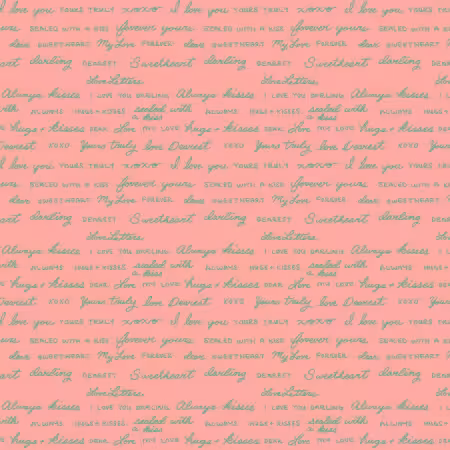 I love you YOURS TRULY xoxo I love you YOURS TRULY xoxo
SEALED WITH A KISS forever yours SEALED WITH A KISS forever yours
dear SWEETHEART My Love FOREVER dear SWEETHEART My Love FOREVER dear
darling DEAREST Sweetheart darling DEAREST
Love Letters Love Letters
Always kisses I LOVE YOU DARLING Always kisses I LOVE YOU DARLING Always kisses
with ALWAYS HUGS + KISSES sealed with a kiss ALWAYS HUGS + KISSES sealed with a kiss ALWAYS HUGS + KISSES
hugs + kisses DEAR LOVE hugs + kisses DEAR LOVE hugs + kisses
Dearest XOXO Yours truly love Dearest XOXO Yours truly
I love you YOURS TRULY xoxo I love you YOURS TRULY xoxo I love you YOURS TRULY
SEALED WITH A KISS forever yours SEALED WITH A KISS forever yours SEALED WITH A KISS
dear SWEETHEART My Love FOREVER dear SWEETHEART My Love FOREVER dear SWEETHEART
darling DEAREST Sweetheart darling DEAREST Sweetheart
Love Letters Love Letters
Always kisses I LOVE YOU DARLING Always kisses I LOVE YOU DARLING Always kisses
with ALWAYS HUGS + KISSES sealed with a kiss ALWAYS HUGS + KISSES sealed with a kiss ALWAYS HUGS + KISSES
hugs + kisses DEAR LOVE hugs + kisses DEAR LOVE hugs + kisses
Dearest XOXO Yours truly love Dearest XOXO Yours truly
I love you YOURS TRULY xoxo I love you YOURS TRULY xoxo I love you YOURS TRULY
SEALED WITH A KISS forever yours SEALED WITH A KISS forever yours SEALED WITH A KISS
dear SWEETHEART My Love FOREVER dear SWEETHEART My Love FOREVER dear SWEETHEART
darling DEAREST Sweetheart darling DEAREST Sweetheart
Love Letters Love Letters
Always kisses I LOVE YOU DARLING Always kisses I LOVE YOU DARLING Always kisses
with ALWAYS HUGS + KISSES sealed with a kiss ALWAYS HUGS + KISSES sealed with a kiss ALWAYS HUGS + KISSES
hugs + kisses DEAR LOVE hugs + kisses DEAR LOVE hugs + kisses